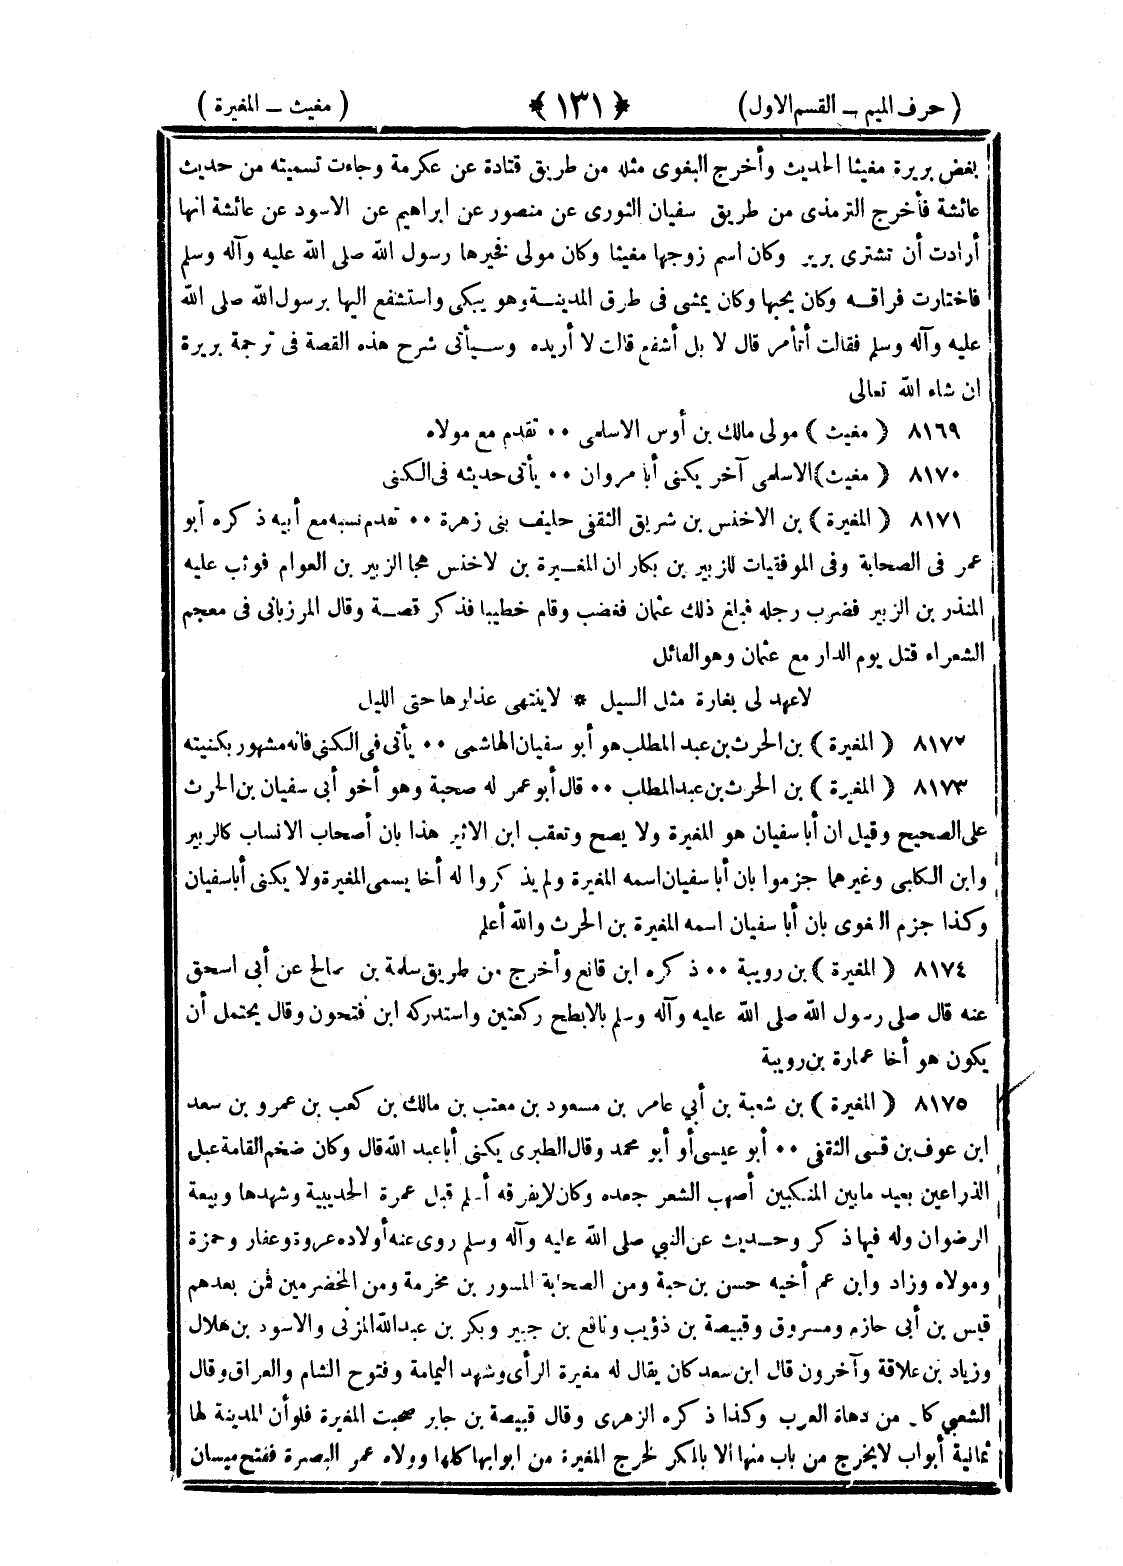 ( حرف الميم – القسم الاول ) ﴿ ١٣١ ﴾ ( مغيث – المغيرة )
بغض بريرة مغيثا الحديث وأخرج البغوى مثله من طريق قتادة عن عكرمة وجاءت تسميته من حديث
عائشة فأخرج الترمذى من طريق سفيان الثورى عن منصور عن ابراهيم عن الاسود عن عائشة انها
أرادت أن تشترى برير وكان اسم زوجها مغيثا وكان مولى فخيرها رسول الله صلى الله عليه وآله وسلم
فاختارت فراقه وكان يحبها وكان يمشى فى طرق المدينة وهو يبكى واستشفع اليها برسول الله صلى الله
عليه وآله وسلم فقالت أتأمر قال لا بل أشفع قالت لا أريده وسيأتى شرح هذه القصة فى ترجمة بريرة
ان شاء الله تعالى
٨١٦٩ ( مغيث ) مولى مالك بن أوس الاسلمى ٠٠ تقدم مع مولاه
٨١٧٠ ( مغيث ) الاسلمى آخر يكنى أبا مروان ٠٠ يأتى حديثه فى الكنى
٨١٧١ ( المغيرة ) بن الاخنس بن شريق الثقفى حليف بنى زهرة ٠٠ تقدم نسبه مع أبيه ذكره أبو
عمر فى الصحابة وفى الموفقيات للزبير بن بكار ان المغيرة بن لاخنس هجا الزبير بن العوام فوثب عليه
المنذر بن الزبير فضرب رجله فبلغ ذلك عثمان فغضب وقام خطيبا فذكر قصة وقال المرزبانى فى معجم
الشعراء قتل يوم الدار مع عثمان وهو القائل
لاعهد لى بغارة مثل السيل * لاينتهى عذارها حتى الليل
٨١٧٢ ( المغيرة ) بن الحرث بن عبد المطلب هو أبو سفيان الهاشمى ٠٠ يأتى فى الكنى فانه مشهور بكنيته
٨١٧٣ ( المغيرة ) بن الحرث بن عبد المطلب ٠٠ قال أبو عمر له صحبة وهو أخو أبى سفيان بن الحرث
على الصحيح وقيل ان أبا سفيان هو المغيرة ولا يصح وتعقب ابن الاثير هذا بان أصحاب الانساب كالزبير
وابن الكلبى وغيرهما جزموا بان أبا سفيان اسمه المغيرة ولم يذكروا له أخا يسمى المغيرة ولا يكنى أبا سفيان
وكذا جزم البغوى بان أبا سفيان اسمه المغيرة بن الحرث والله أعلم
٨١٧٤ ( المغيرة ) بن رويبة ٠٠ ذكره ابن قانع وأخرج من طريق سلمة بن صالح عن أبى اسحق
عنه قال صلى رسول الله صلى الله عليه وآله وسلم بالابطح ركعتين واستدركه ابن فتحون وقال يحتمل أن
يكون هو أخا عمارة بن رويبة
٨١٧٥ ( المغيرة ) بن شعبة بن أبي عامر بن مسعود بن معتب بن مالك بن كعب بن عمرو بن سعد
ابن عوف بن قسى الثقفى ٠٠ أبو عيسى أو أبو محمد وقال الطبرى يكنى أبا عبد الله قال وكان ضخم القامة عبل
الذراعين بعيد مابين المنكبين أصهب الشعر جعده وكان لايفرقه أسلم قبل عمرة الحديبية وشهدها وبيعة
الرضوان وله فيها ذكر وحديث عن النبي صلى الله عليه وآله وسلم روى عنه أولاده عروة وعفار وحمزة
ومولاه وزاد وابن عم أخيه حسن بن حبة ومن الصحابة المسور بن مخرمة ومن المخضرمين فمن بعدهم
قيس بن أبى حازم ومسروق وقبيصة بن ذؤيب ونافع بن جبير وبكر بن عبد الله المزنى والاسود بن هلال
وزياد بن علاقة وآخرون قال ابن سعد كان يقال له مغيرة الرأى وشهد اليمامة وفتوح الشام والعراق وقال
الشعبي كان من دهاة العرب وكذا ذكره الزهرى وقال قبيصة بن جابر صحبت المغيرة فلو أن المدينة لها
ثمانية أبواب لايخرج من باب منها الا بالمكر لخرج المغيرة من ابوابها كلها وولاه عمر البصرة ففتح ميسان